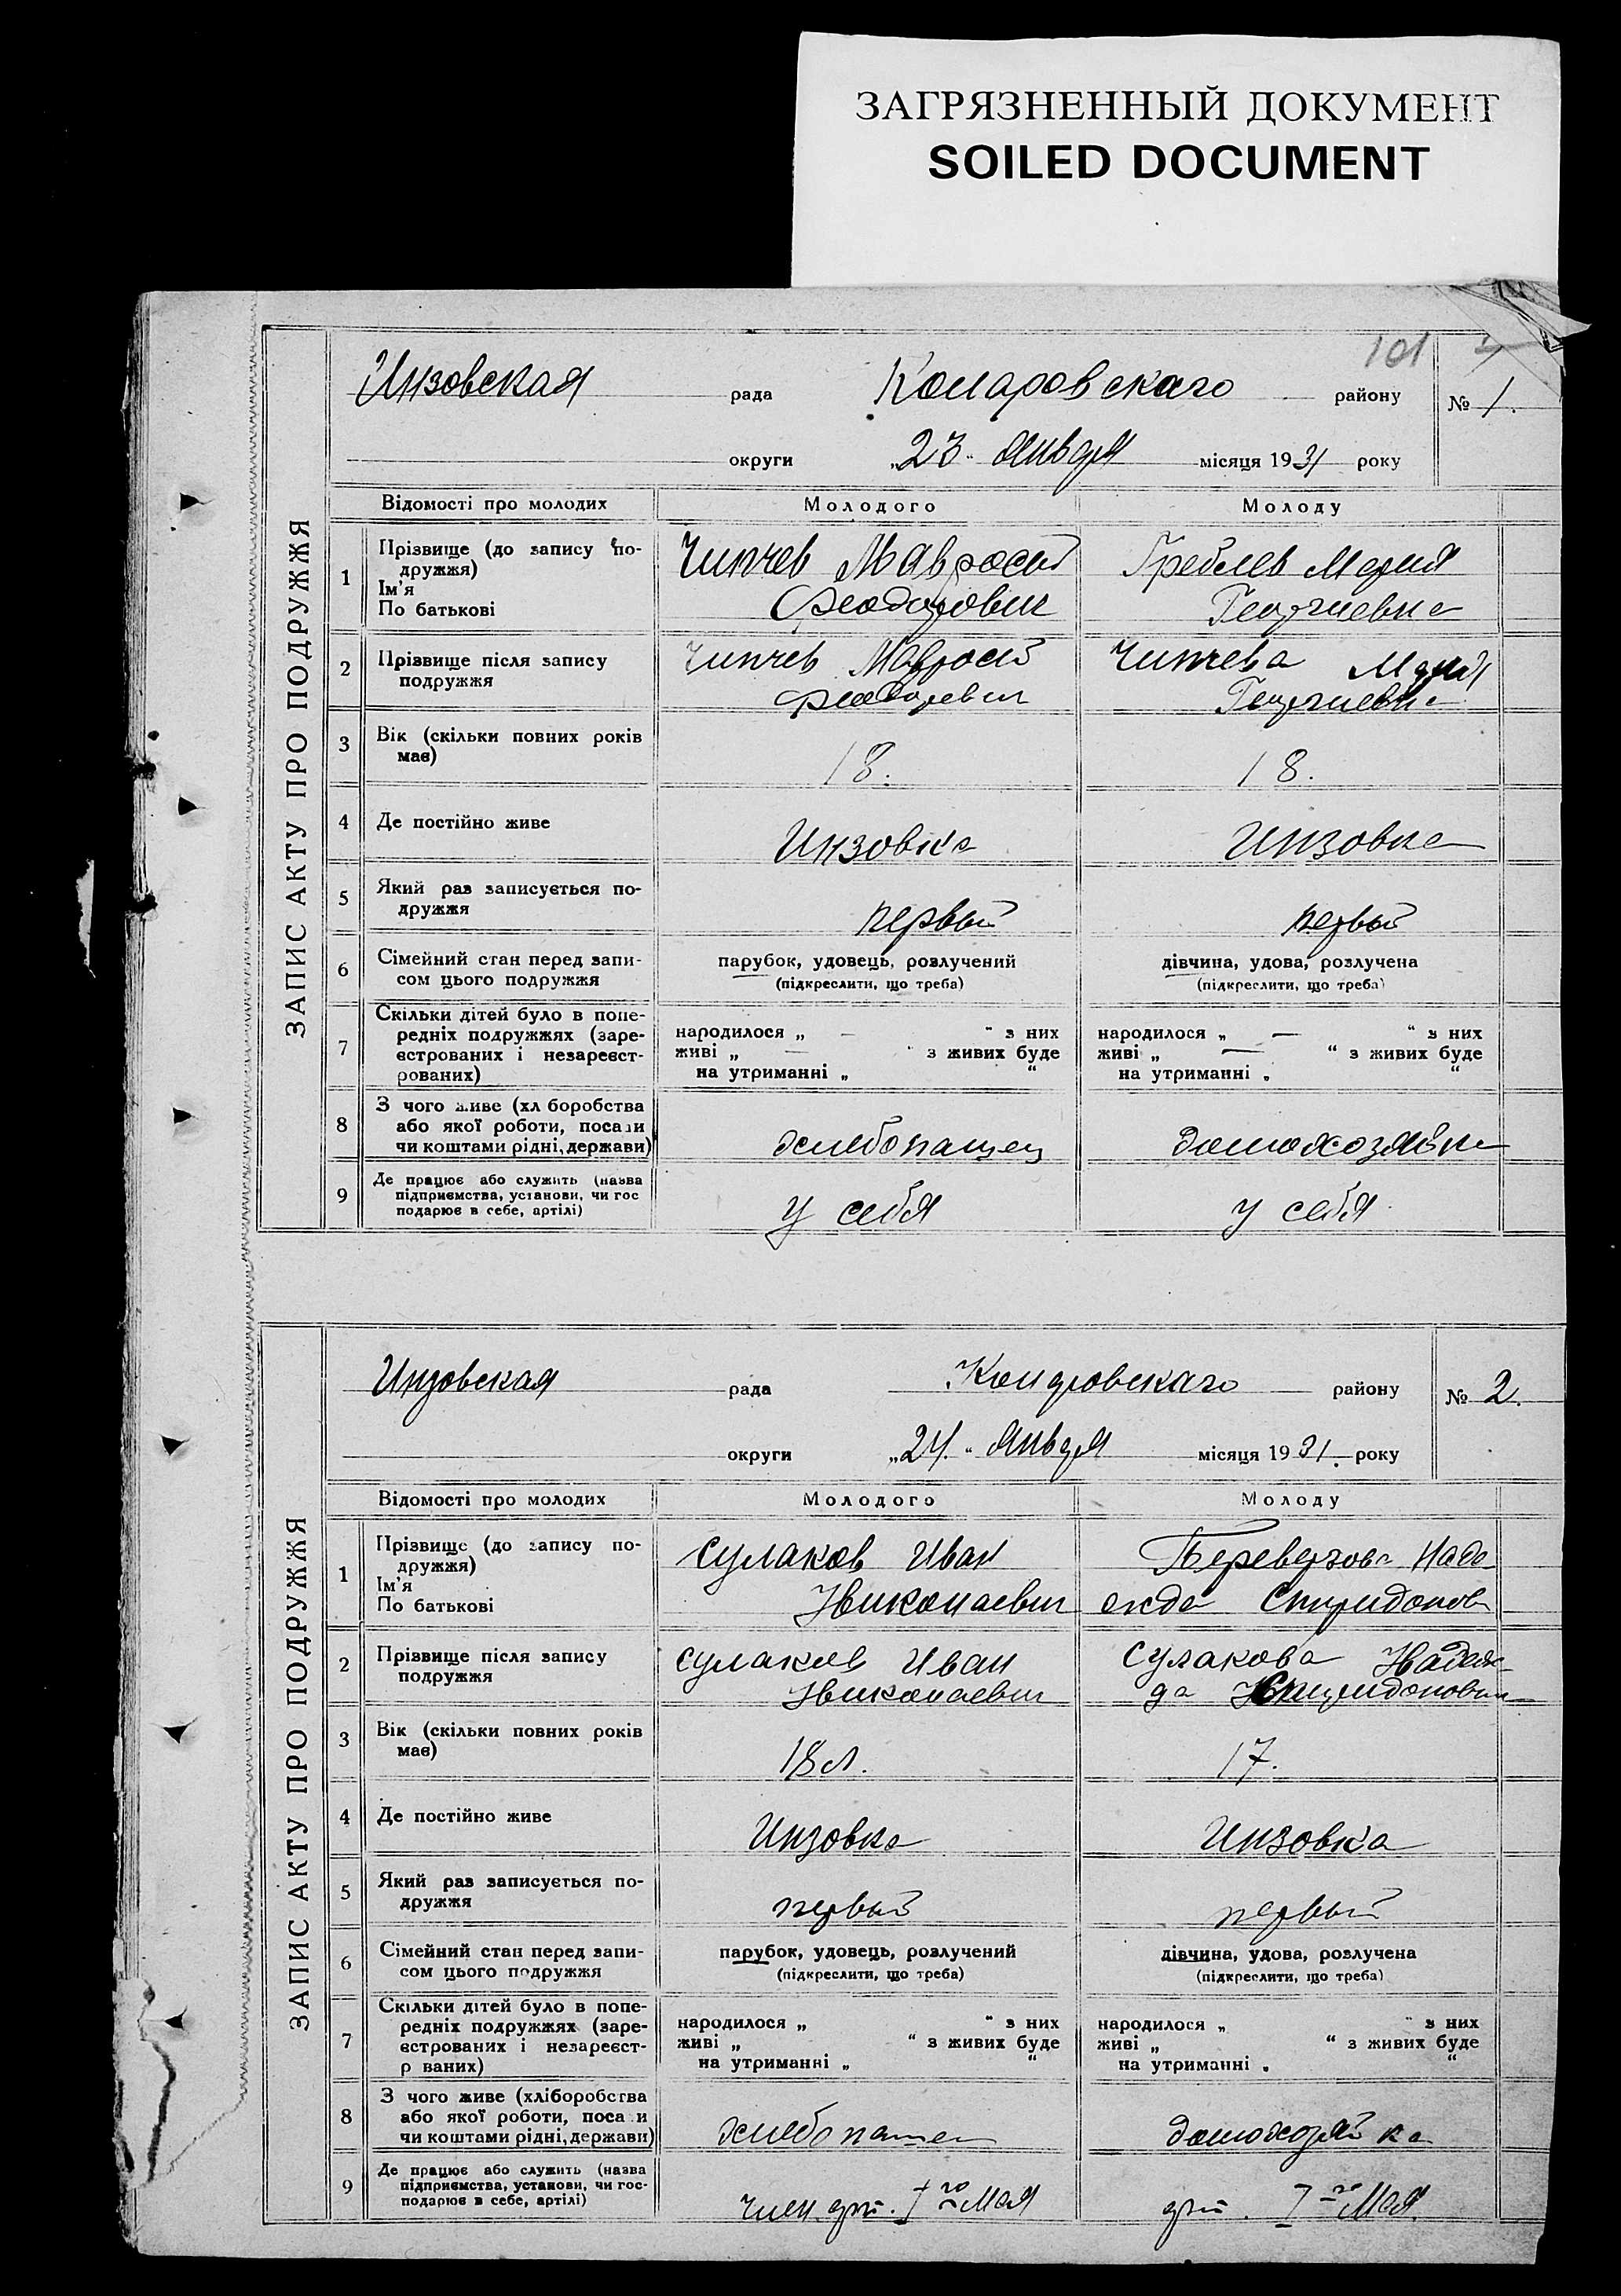 ЗАГРЯЗНЕННЫЙ ДОКУМЕНТ
SOILED DOCUMENT
101
Инзовская рада Комаровского району № 1.
округи „23" Января місяця 1931 року
ЗАПИС АКТУ ПРО ПОДРУЖЖЯ
Відомості про молодих Молодого Молоду
1 Прізвище (до запису по-
дружжя)
Ім'я
По батькові
Чипчев Мавросий
Феодорович
Греблев Мария
Георгиевна
2 Прізвище після запису
подружжя
Чипчев Мавросий
Феодорович
Чипчева Мария
Георгиевна
3 Вік (скільки повних років
має)
18. 18.
4 Де постійно живе Инзовка Инзовка
5 Який раз записується по-
дружжя
первый первый
6 Сімейний стан перед запи-
сом цього подружжя
парубок, удовець, розлучений
(підкреслити, що треба)
дівчина, удова, розлучена
(підкреслити, що треба)
7 Скільки дітей було в попе-
редніх подружжях (заре-
єстрованих і незареєст-
рованих)
народилося „ — " з них
живі „ — " з живих буде
на утриманні „ "
народилося „ — " з них
живі „ — " з живих буде
на утриманні „ "
8 З чого живе (хл боробства
або якої роботи, посади
чи коштами рідні, держави)
хлебопашец домохозяйка
9 Де працює або служить (назва
підприємства, установи, чи гос
подарює в себе, артілі)
у себя у себя
Инзовская рада району № 2.
округи „24." Января місяця 1931. року
ЗАПИС АКТУ ПРО ПОДРУЖЖЯ
Відомості про молодих Молодого Молоду
1 Прізвище (до запису по-
дружжя)
Ім'я
По батькові
Сулаков Иван
Николаевич
Наде
жда Спиридонов
2 Прізвище після запису
подружжя
Сулаков Иван
Николаевич
Сулакова Надеж-
да Спиридоновна
3 Вік (скільки повних років
має)
18 л. 17.
4 Де постійно живе Инзовка Инзовка
5 Який раз записується по-
дружжя
первый первый
6 Сімейний стан перед запи-
сом цього подружжя
парубок, удовець, розлучений
(підкреслити, що треба)
дівчина, удова, розлучена
(підкреслити, що треба)
7 Скільки дітей було в попе-
редніх подружжях (заре-
єстрованих і незареєст-
р ваних)
народилося „ " з них
живі „ " з живих буде
на утриманні „ "
народилося „ " з них
живі „ " з живих буде
на утриманні „ "
8 З чого живе (хліборобства
або якої роботи, поса и
чи коштами рідні, держави)
хлебопашец домохозяйка
9 Де працює або служить (назва
підприємства, установи, чи гос-
подарює в себе, артілі)
член. арт. I го Мая арт. I го Мая.